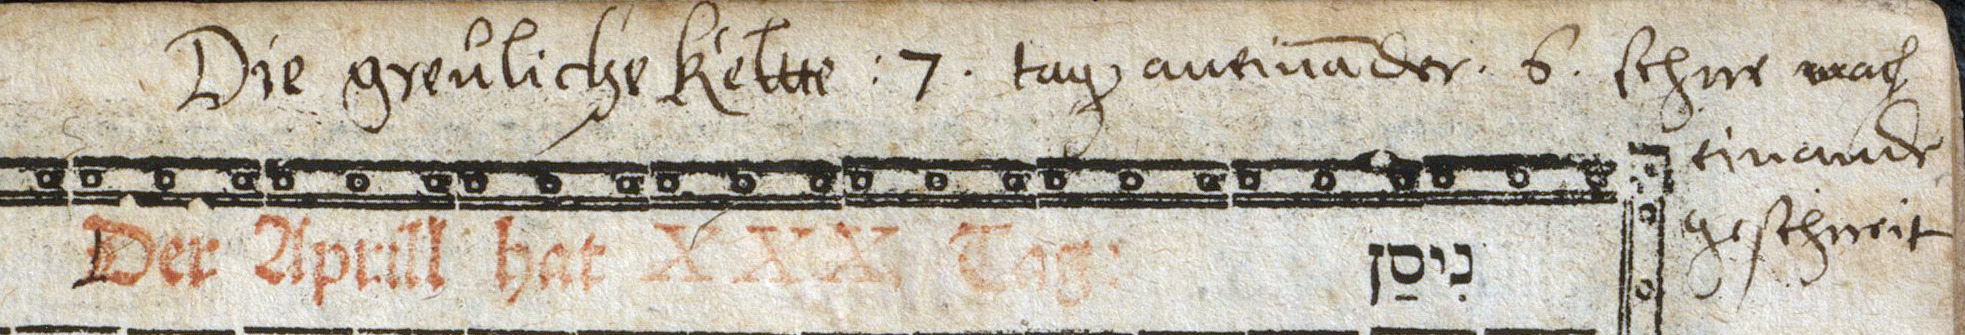 Die greuliche Keltte : 7 . tag aneināder . 6 . schne nach
einander
geschneit
Der Aprill hat XXX. Tag:
נִיסַן